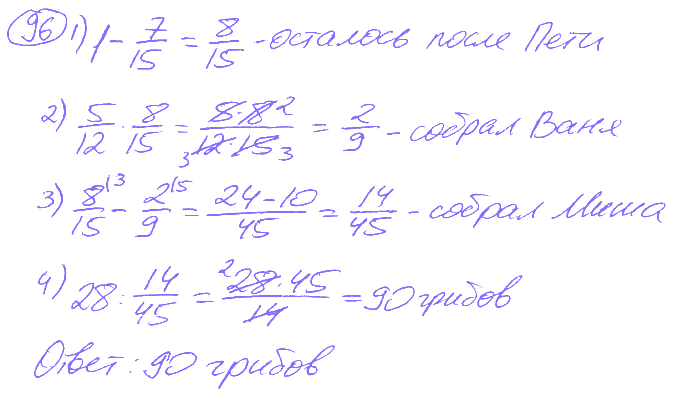 96 1) 1 - 7/15 = 8/15 - осталось после Пети
2) 5/12 · 8/15 = 8·8²/₃12·15₃ = 2/9 - собрал Ваня
3) 8/15 ¹³ - 2/9 ¹⁵ = 24-10/45 = 14/45 - собрал Миша
4) 28 : 14/45 = ²28·45/14 = 90 грибов
Ответ: 90 грибов